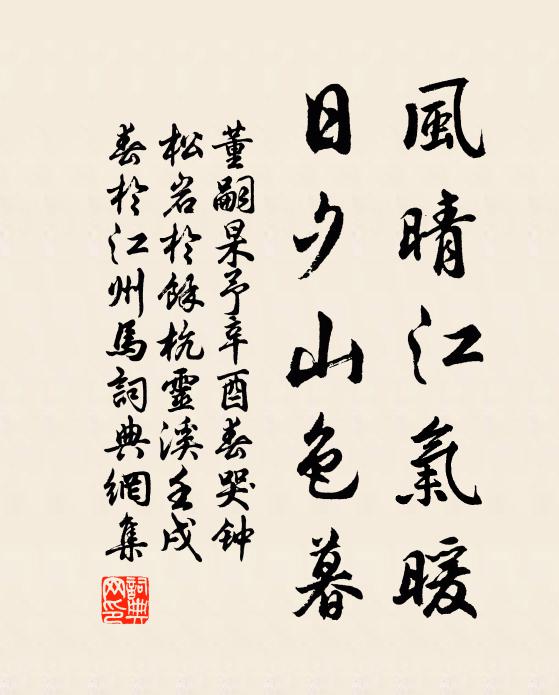 風晴江氣暖
日夕山色暮
董嗣杲予辛酉春哭钟
松岩於餘杭靈溪壬戌
春於江州馬詞典網集
詞典
网印